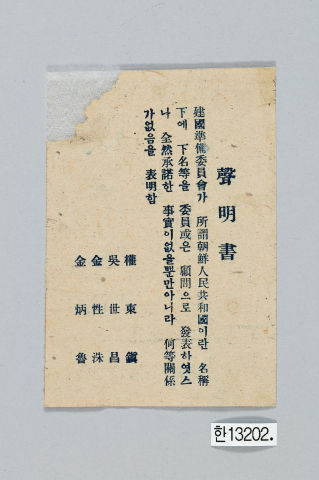 聲明書
建國準備委員會가 所謂朝鮮人民共和國이란 名稱
下에 下名等을 委員或은 顧問으로 發表하엿스
나 全然承諾한 事實이없을뿐만아니라 何等關係
가없음을 表明함
權東鎭
吳世昌
金性洙
金炳魯
한13202.